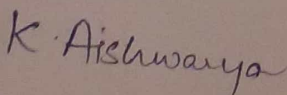 K. Aishwarya